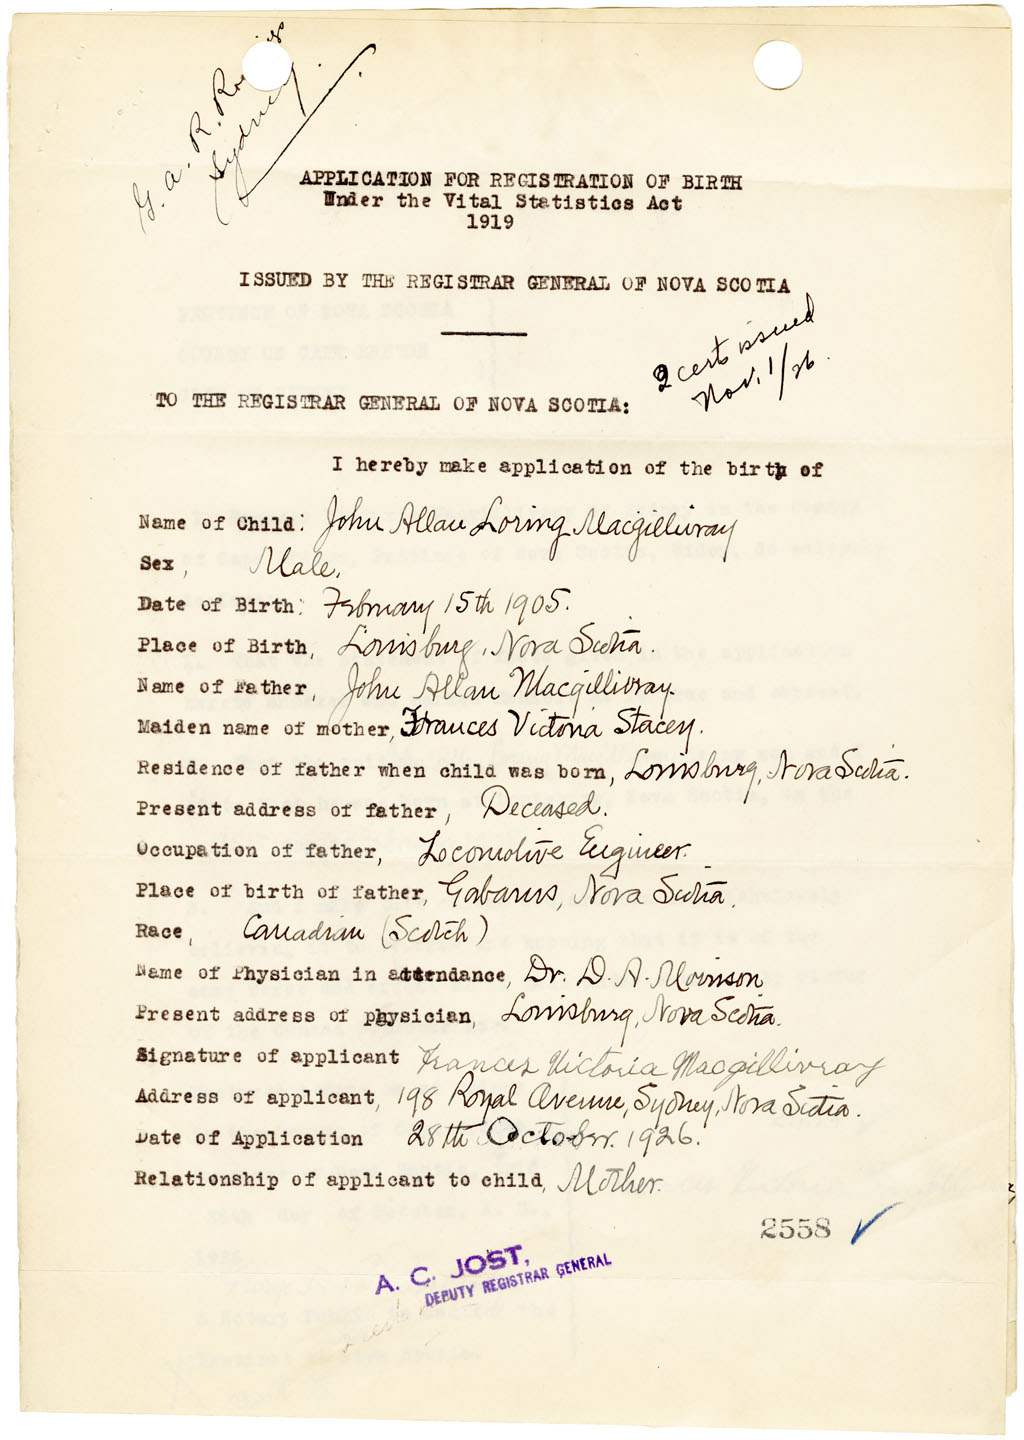 G. A. R. R
Sydney
APPLICATION FOR REGISTRATION OF BIRTH
Under the Vital Statistics Act
1919
ISSUED BY THE REGISTRAR GENERAL OF NOVA SCOTIA
2 certs issued
Nov. 1/26.
TO THE REGISTRAR GENERAL OF NOVA SCOTIA:
I hereby make application of the birth of
Name of Child: John Allan Loring Macgillivray
Sex, Male.
Date of Birth: February 15th 1905.
Place of Birth, Louisburg, Nova Scotia.
Name of Father, John Allan Macgillivray.
Maiden name of mother, Frances Victoria Stacey.
Residence of father when child was born, Louisburg, Nova Scotia.
Present address of father, Deceased.
Occupation of father, Locomotive Engineer.
Place of birth of father, Gabarus, Nova Scotia.
Race, Canadian (Scotch)
Name of Physician in attendance, Dr. D. A. Morrison
Present address of physician, Louisburg, Nova Scotia.
Signature of applicant Frances Victoria Macgillivray
Address of applicant, 198 Royal Avenue, Sydney, Nova Scotia.
Date of Application 28th October. 1926.
Relationship of applicant to child, Mother.
2558
A. C. JOST,
DEPUTY REGISTRAR GENERAL